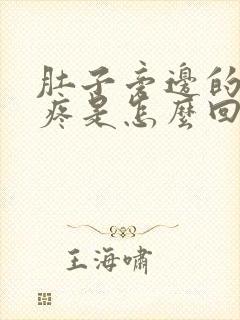 肚子旁邊的
疼是怎麼回
王海嘯